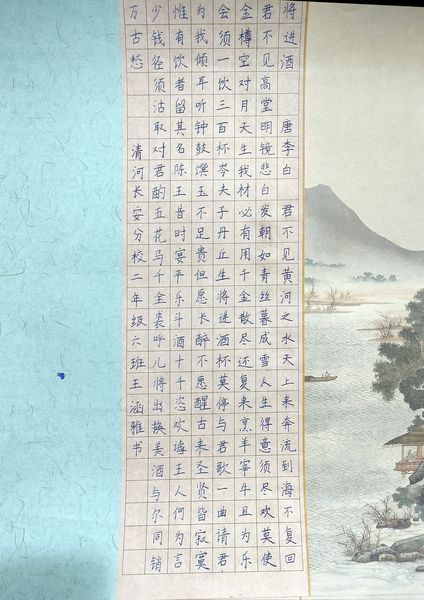 将进酒 唐李白 君不见黄河之水天上来奔流到海不复回
君不见高堂明镜悲白发朝如青丝暮成雪人生得意须尽欢莫使
金樽空对月天生我材必有用千金散尽还复来烹羊宰牛且为乐
会须一饮三百杯岑夫子丹丘生将进酒杯莫停与君歌一曲请君
为我倾耳听钟鼓馔玉不足贵但愿长醉不愿醒古来圣贤皆寂寞
惟有饮者留其名陈王昔时宴平乐斗酒十千恣欢谑主人何为言
少钱径须沽取对君酌五花马千金裘呼儿将出换美酒与尔同销
万古愁 清河长安分校二年级六班王涵雅书